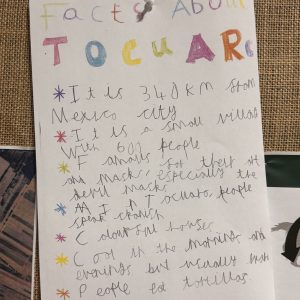 Facts About
TOCUARO
It is 340km from
Mexico city
It is a small village
With 600 people
Famous for their art
and masks, especially the
devil masks
All In Tocuaro people
speak spanish
Colourful houses
Cool in the morning and
evenings but usually
People eat tortillas